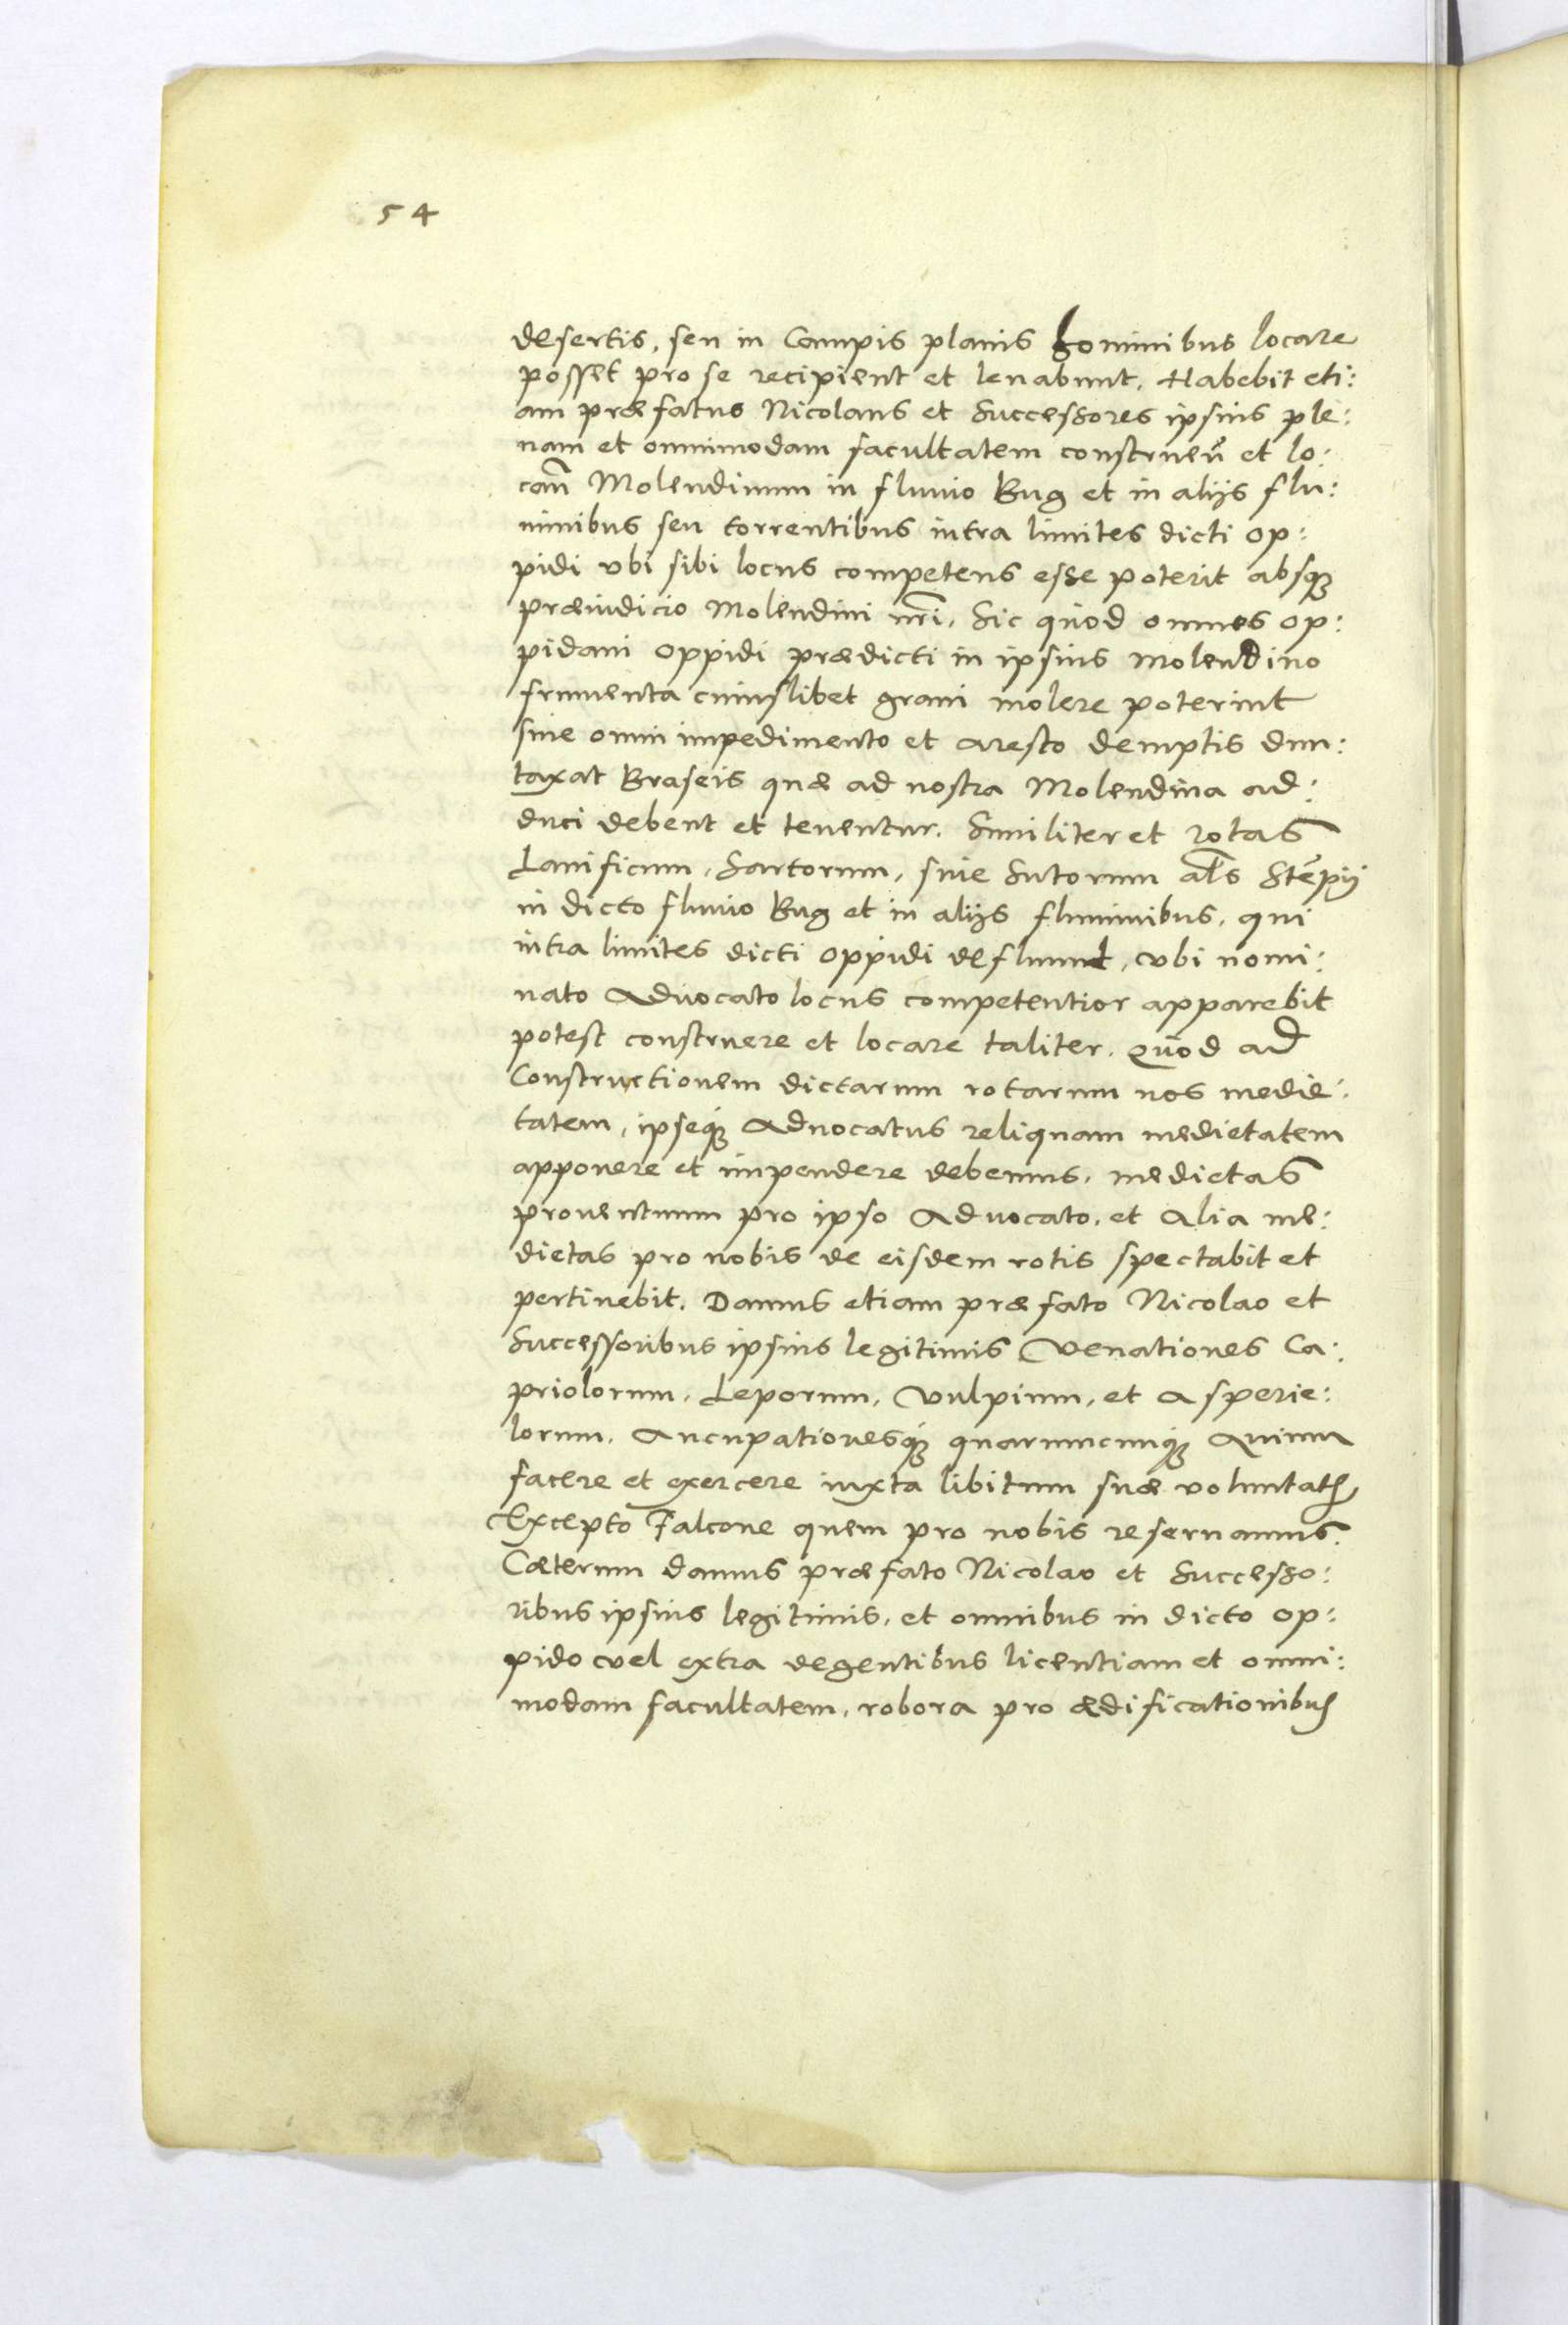 54
desertis, seu in Campis planis hominibus locare
posset pro se recipient et leuabunt. Habebit eti:
am præfatus Nicolaus et Successores ipsius ple:
nam et omnimodam facultatem construeñ et lo:
cañ Molendinum in fluuio Bug et in alijs flu:
minibus seu torrentibus intra limites dicti op:
pidi vbi sibi locus competens esse poterit absq3
præiudicio Molendini nr̃i. Sic quod omnes op:
pidani oppidi prædicti in ipsius Molendino
frumenta cuiuslibet grani molere poterint
sine omni impedimento et aresto demptis dun:
taxat Braseis quæ ad nostra Molendina ad:
duci debent et tenentur. Similiter et rotas
Lanificum, Sartorum, siue Sutorum al̃s Stẽpÿ
in dicto fluuio Bug et in alijs fluminibus, qui
intra limites dicti oppidi defluunt, vbi nomi:
nato Aduocato locus competentior apparebit
potest construere et locare taliter. Quod ad
Constructionem dictarum rotarum nos medie:
tatem, ipseq3 Aduocatus reliquam medietatem
apponere et impendere debemus, medietas
prouentuum pro ipso Aduocato, et alia me:
dietas pro nobis de eisdem rotis spectabit et
pertinebit. Damus etiam præfato Nicolao et
Successoribus ipsius legitimis Venationes Ca:
priolorum, Leporum, Vulpium, et Asperie:
lorum. Aucupationesq3 quarumcunq3 Auium
facere et exercere iuxta libitum suæ voluntatis
Excepto Falcone quem pro nobis reseruamus.
Cæterum damus præfato Nicolao et Successo:
ribus ipsius legitimis, et omnibus in dicto op:
pido vel extra degentibus licentiam et omni:
modam facultatem, robora pro ædificationibus